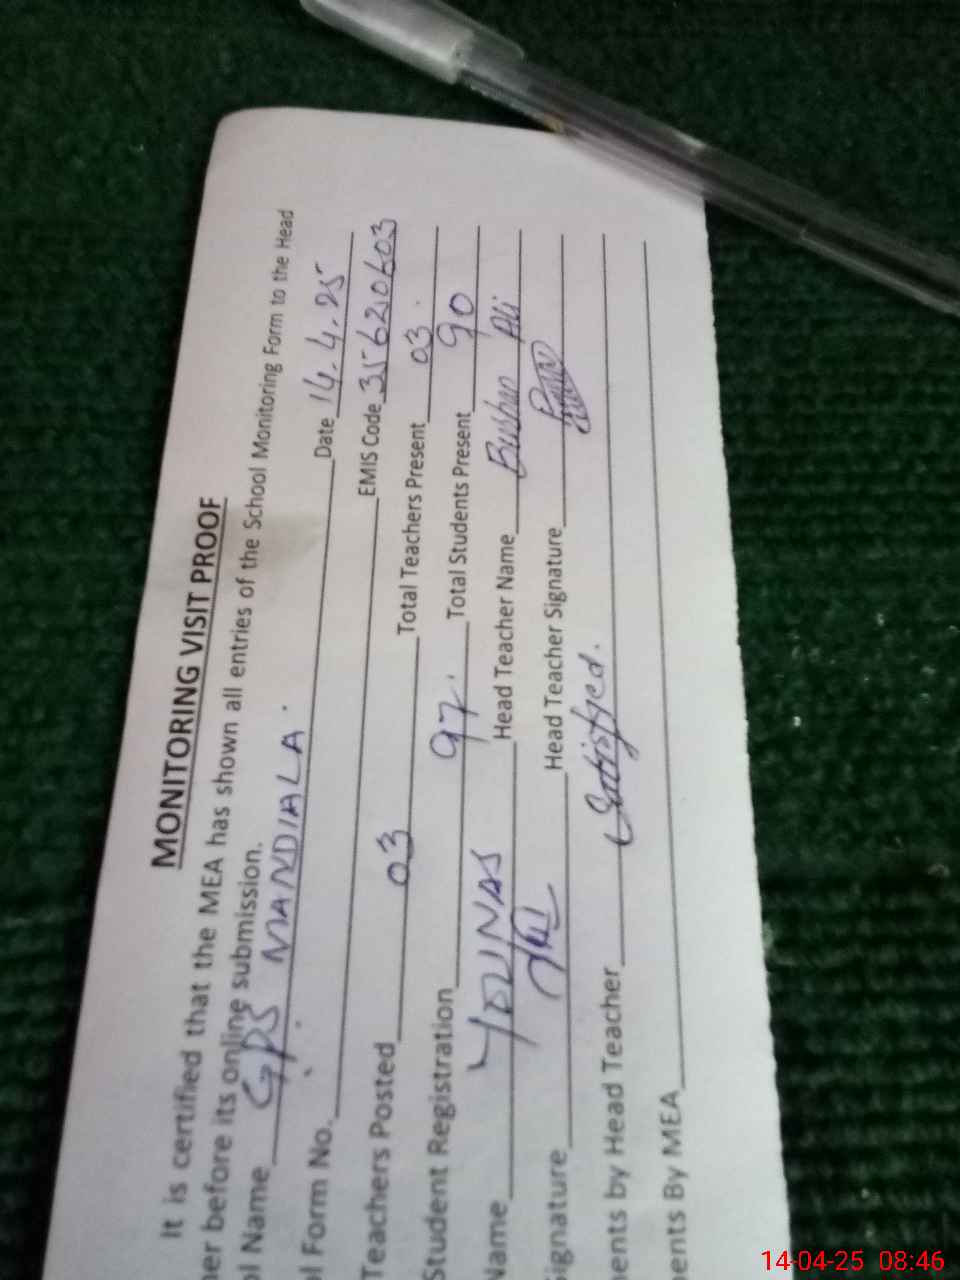 MONITORING VISIT PROOF
It is certified that the MEA has shown all entries of the School Monitoring Form to the Head
her before its online submission.
ol Name GPS MANDIALA. Date 14.4.25
ol Form No. EMIS Code 35620603
Teachers Posted 03 Total Teachers Present 03.
Student Registration 97. Total Students Present 90
Name YOUNAS Head Teacher Name Bushra Ali
ignature Head Teacher Signature
ents by Head Teacher Satisfyed.
ents By MEA
14-04-25 08:46